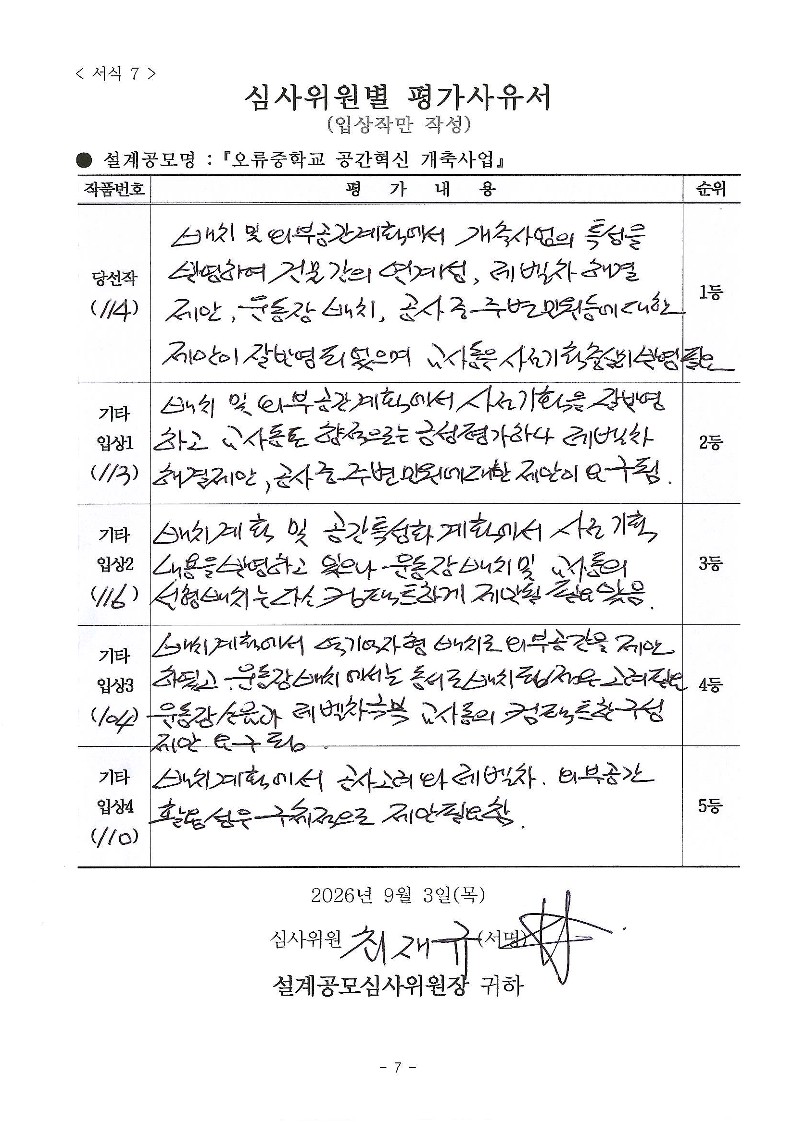 < 서식 7 >
심사위원별 평가사유서
(입상작만 작성)
● 설계공모명 : 『오류중학교 공간혁신 개축사업』
작품번호 평 가 내 용 순위
당선작
(114)
배치 및 외부공간계획에서 개축사업의 특성을
반영하여 건물간의 연계성, 레벨차 해결
제안, 운동장 배치, 공사중 주변민원등에 대한
제안이 잘반영되 있으며 교사동은 사전기획 반영필요
1등
기타
입상1
(113)
배치 및 외부공간계획에서 사전기획을 잘반영
하고 교사동도 향적으로는 긍정평가하나 레벨차
해결제안, 공사중 주변민원에대한 제안이 요구됨.
2등
기타
입상2
(116)
배치계획 및 공간특성화 계획에서 사전기획
내용을 반영하고 있으나 운동장 배치및 교사동의
선형배치는 다소 컴팩트하게 제안될 필요있음.
3등
기타
입상3
(104)
배치계획에서 여자형 배치로 외부공간을 제안
하였고 운동장 배치에서는 동서로 배치됨점은 고려필요
운동장소음과 레벨차극복 교사동의 컴팩트한 구성
제안 요구됨.
4등
기타
입상4
(110)
배치계획에서 공사고려와 레벨차. 외부공간
활용성은 구체적으로 제안필요함.
5등
2026년 9월 3일(목)
심사위원 최재규 (서명)
설계공모심사위원장 귀하
- 7 -